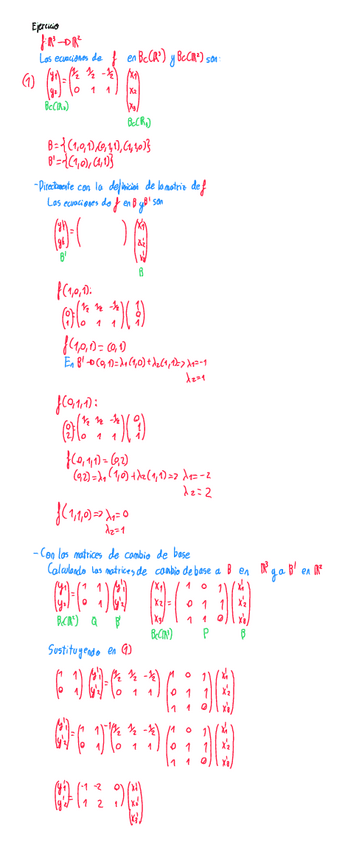 Ejercicio
f: ℝ³ → ℝ²
Las ecuaciones de f en Bc(ℝ³) y Bc(ℝ²) son:
(1) (y₁ y₂) = (1/2 1/2 -1/2 / 0 1 1) (x₁ x₂ x₃)
Bc(ℝ²) Bc(ℝ³)
B={(1,0,1),(0,1,1),(1,1,0)}
B'={(1,0),(1,1)}
- Directamente con la definición de la matriz de f
Las ecuaciones de f en B y B' son
(y'₁ y'₂) = ( ) (x'₁ x'₂ x'₃)
B' B
f(1,0,1):
(0 1) = (1/2 1/2 -1/2 / 0 1 1) (1 0 1)
f(1,0,1) = (0,1)
En B' → (0,1) = λ₁(1,0)+λ₂(1,1) => λ₁=-1
λ₂=1
f(0,1,1):
(0 2) = (1/2 1/2 -1/2 / 0 1 1) (0 1 1)
f(0,1,1) = (0,2)
(0,2) = λ₁(1,0)+λ₂(1,1) => λ₁=-2
λ₂=2
f(1,1,0) => λ₁=0
λ₂=1
- Con las matrices de cambio de base
Calculando las matrices de cambio de base a B en ℝ³ y a B' en ℝ²
(y₁ y₂) = (1 1 / 0 1) (y'₁ y'₂) (x₁ x₂ x₃) = (1 0 1 / 0 1 1 / 1 1 0) (x'₁ x'₂ x'₃)
Bc(ℝ²) Q B' Bc(ℝ³) P B
Sustituyendo en (1)
(1 1 / 0 1) (y'₁ y'₂) = (1/2 1/2 -1/2 / 0 1 1) (1 0 1 / 0 1 1 / 1 1 0) (x'₁ x'₂ x'₃)
(y'₁ y'₂) = (1 1 / 0 1)⁻¹ (1/2 1/2 -1/2 / 0 1 1) (1 0 1 / 0 1 1 / 1 1 0) (x'₁ x'₂ x'₃)
(y'₁ y'₂) = (-1 -2 0 / 1 2 1) (x'₁ x'₂ x'₃)